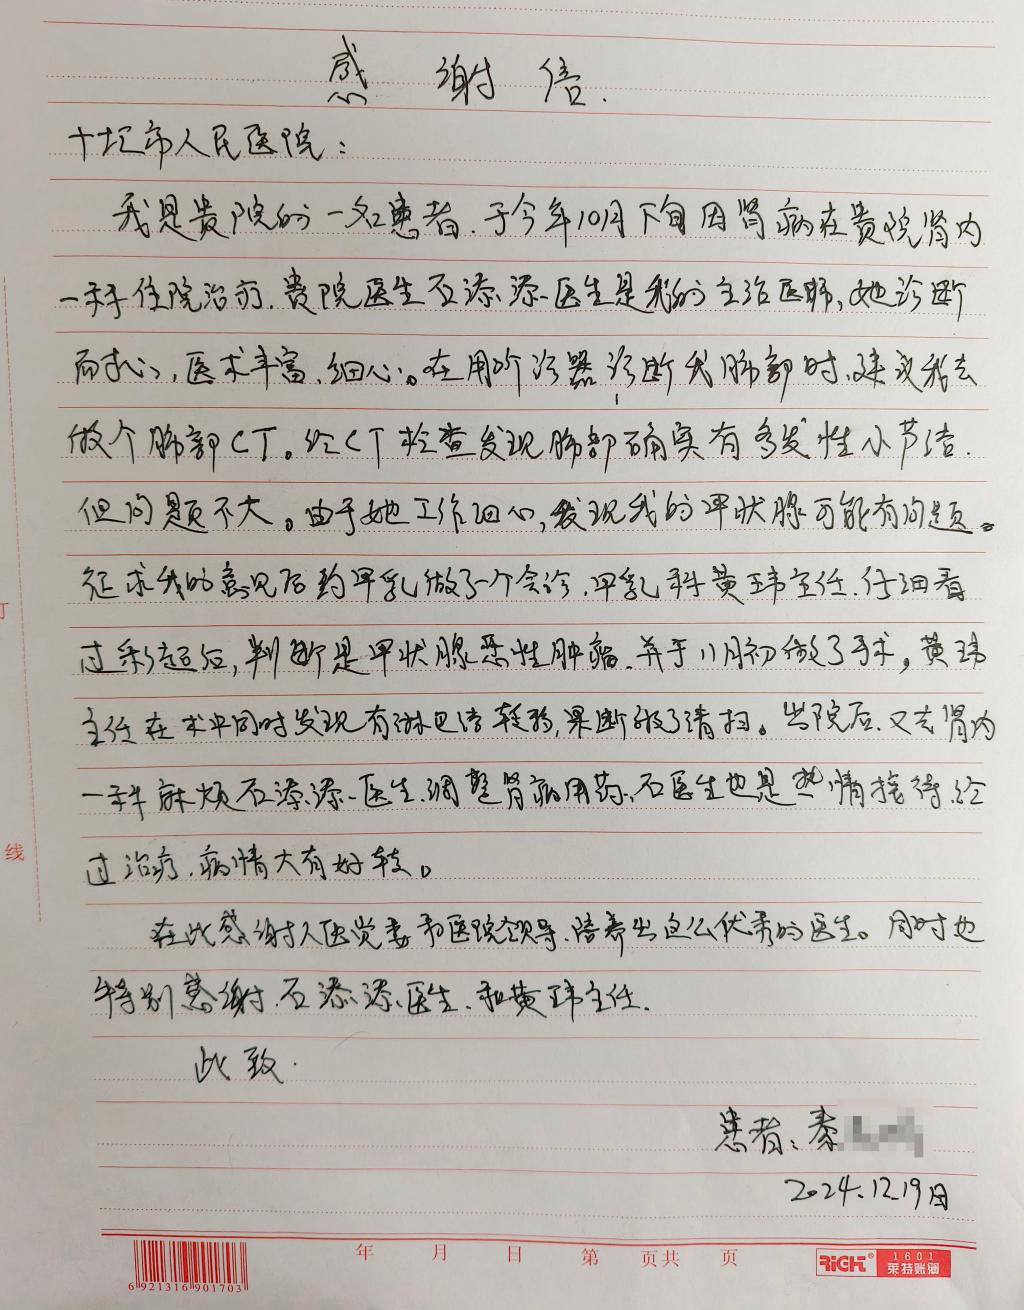 感谢信.
十堰市人民医院：
我是贵院的一名患者.于今年10月下旬因肾病在贵院肾内
一科住院治疗.贵院医生石添添医生是我的主治医师,她诊断
而耐心,医术丰富.细心。在用听诊器诊断我肺部时.建议我去
做个肺部CT。经CT检查发现肺部确实有多发性小节结.
但问题不大。由于她工作细心,发现我的甲状腺可能有问题。
征求我的意见后约甲乳做了一个会诊.甲乳科黄玮主任.仔细看
过彩超后,判断是甲状腺恶性肿瘤.并于11月初做了手术。黄玮
主任在术中同时发现有淋巴结转移,果断做了清扫。出院后.又去肾内
一科麻烦石添添医生.调整肾病用药.石医生也是热情接待.经
过治疗.病情大有好转。
在此感谢人医党委和医院领导.培养出这么优秀的医生。同时也
特别感谢.石添添医生.和黄玮主任.
此致.
患者:秦
2024.12.19日
订
线
6 921316 901703
年 月 日 第 页共 页
RiCH® 1601 莱特账簿